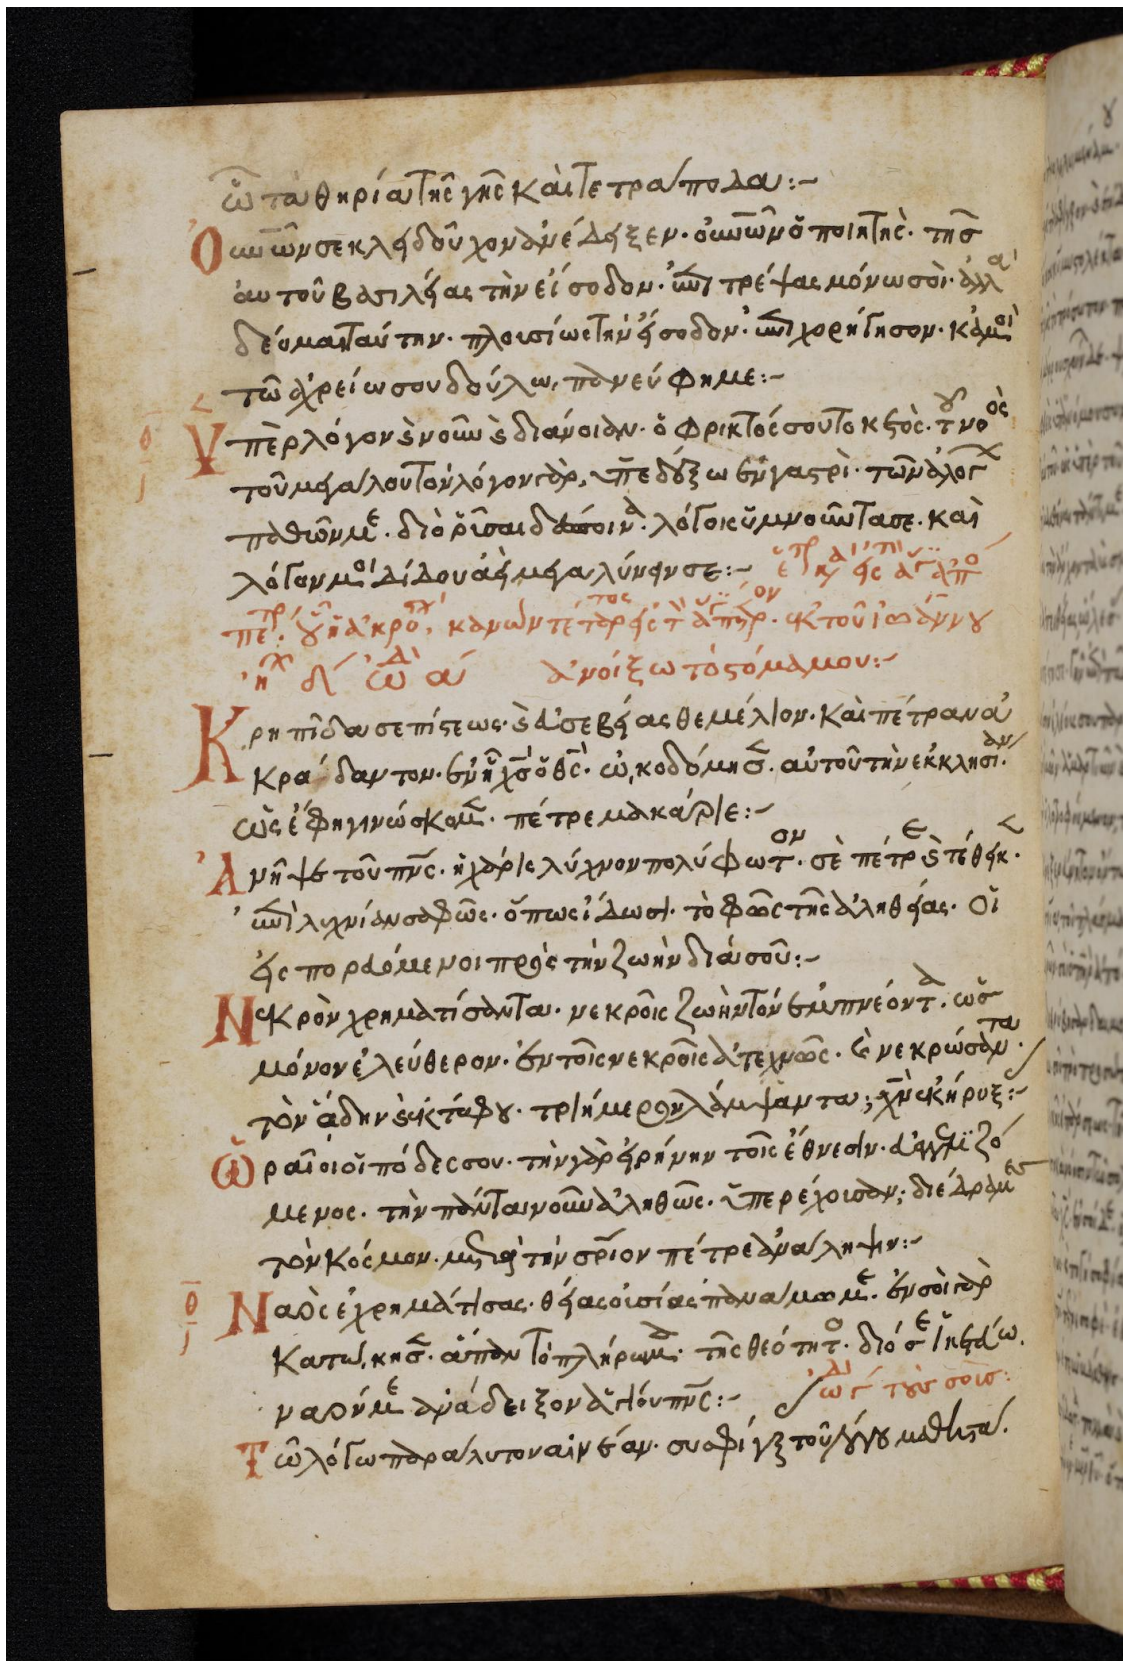 ὧ τὰ θηρία τῆς γῆς καὶ τετράποδα:~
Ὁ ὢν σε κλειδοῦχον ἀνέδειξεν· ὁ ὢν ὁ ποιητής· τῆς
αὐτοῦ βασιλείας τὴν εἴσοδον· ἐπιτρέψας μόνω σοὶ· ἀλλὰ
δέομαι ταύτην· πλουσίως τὴν εἴσοδον· ἐπιχορήγησον· κἀμοὶ
τῶ ἀχρείω σου δούλω, πανεύφημε:~
Ὑπὲρ λόγον καὶ νοῦν καὶ διάνοιαν· ὁ φρικτός σου τόκος·
τοῦ μεγάλου τὸν λόγον γὰρ, ὑπεδέξω ἐν γαστρὶ· τῶν ἀλόγ
παθῶν με· διὸ ῥῦσαι δέσποινα· λόγοις ὑμνοῦντά σε· καὶ
λόγον μοι δίδου ἀεὶ μεγαλύνειν σε:~
κανὼν τέταρ εἰς τ ἀπ πέτρ· ἐκ τοῦ ἰωάννου
ἦχ δ ὠδ α ἀνοίξω τὸ στόμα μου:~
Κρηπῖδα σε πίστεως· καὶ εὐσεβείας θεμέλιον· καὶ πέτραν ἀ
κράδαντον· ἐν ἧ χς ὁ θς· ὠκοδόμησε αὐτοῦ τὴν ἐκκλησίαν·
ὡς ἐπιγινώσκομεν· πέτρε μακάριε:~
Ἀνῆψε τοῦ πνς· ἡ χάρις λύχνον πολύφωτον· σὲ πέτρε καὶ τέθεικε·
ἐπὶ λυχνίαν σαφῶς· ὅπως ἴδωσι· τὸ φῶς τῆς ἀληθείας· οἱ
εἰσπορευόμενοι πρὸς τὴν ζωὴν διὰ σοῦ:~
Νεκρὸν χρηματίσαντα· νεκροῖς ζωὴν τὸν ἐμπνέοντα· ὡς
μόνον ἐλεύθερον· ἐν τοῖς νεκροῖς ἀτεχνῶς· καὶ νεκρώσαντα·
τὸν ἅδην καὶ ἐκ τάφου· τριήμερον λάμψαντα· χν ἐκήρυξ:~
Ὡραῖοι οἱ πόδες σου· τὴν γὰρ εἰρήνην τοῖς ἔθνεσιν· εὐαγγελιζό
μενος· τὴν πάντα νοῦν ἀληθῶς· ὑπερέχουσαν· διέδραμες
τὸν κόσμον· μετὰ τὴν σριον πέτρε ἀνάληψιν:~
Ναὸς ἐχρημάτισας· θείας οὐσίας πανάμωμε· ἐν σοὶ γὰρ
κατώκησε· ἅπαν τὸ πλήρωμα· τῆς θεότητος· διό σε ἱκετεύω·
ναόν με ἀνάδειξον ἅγιον πνς:~ ὠδ γ τοὺς σοὺς:
Τῶ λόγω παράλυτον αἰνέαν· συσφίγξ τοῦ λόγου μαθητά·